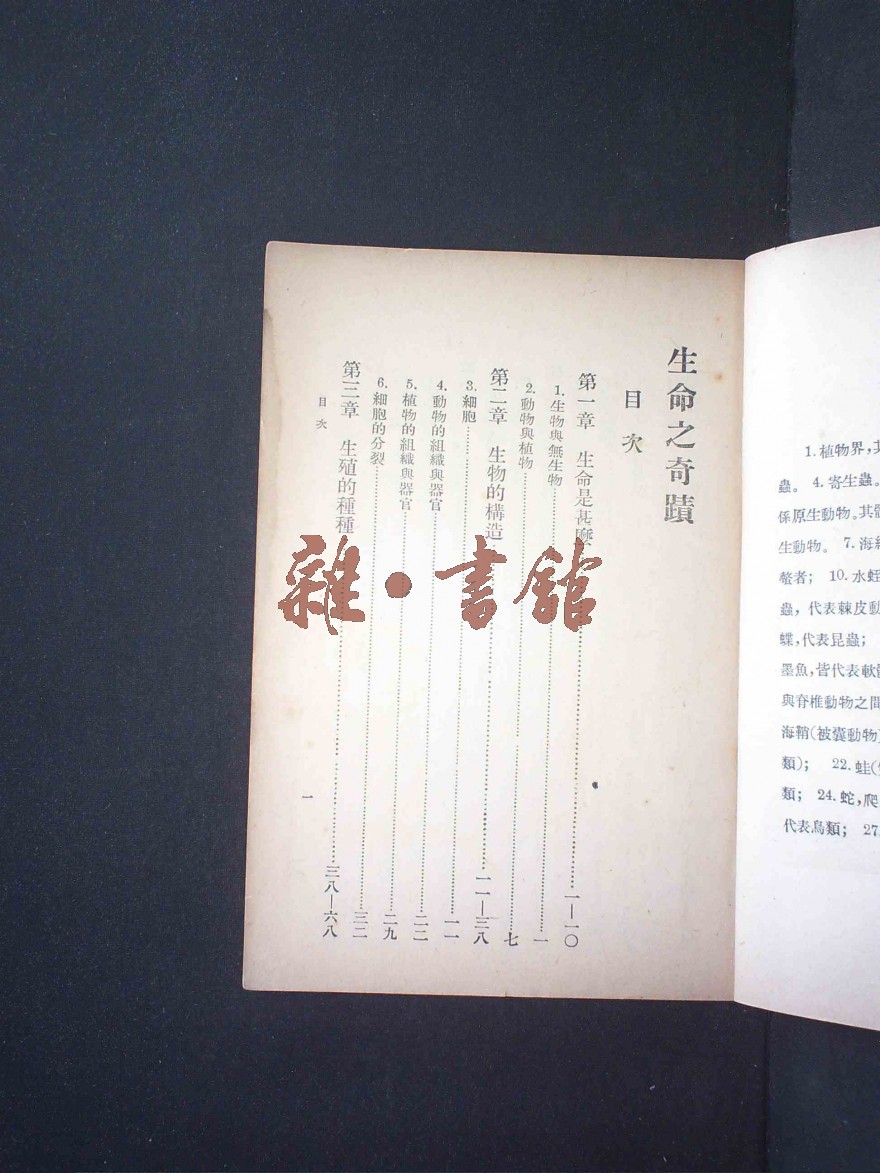 生命之奇蹟
目次
第一章 生命是甚麼……一—一〇
1. 生物與無生物……一
2. 動物與植物……七
第二章 生物的構造……一一—三八
3. 細胞……一一
4. 動物的組織與器官……二二
5. 植物的組織與器官……二九
6. 細胞的分裂……三二
第三章 生殖的種種……三八—六八
目次
一
雜·書館
1. 植物界，其
蟲。 4. 寄生蟲。
係原生動物。其體
生動物。 7. 海綿
螯者； 10. 水蛭
蟲，代表棘皮動
蝶，代表昆蟲；
墨魚，皆代表軟體
與脊椎動物之間
海鞘（被囊動物）
類）； 22. 蛙（
類； 24. 蛇，爬
代表鳥類； 27.